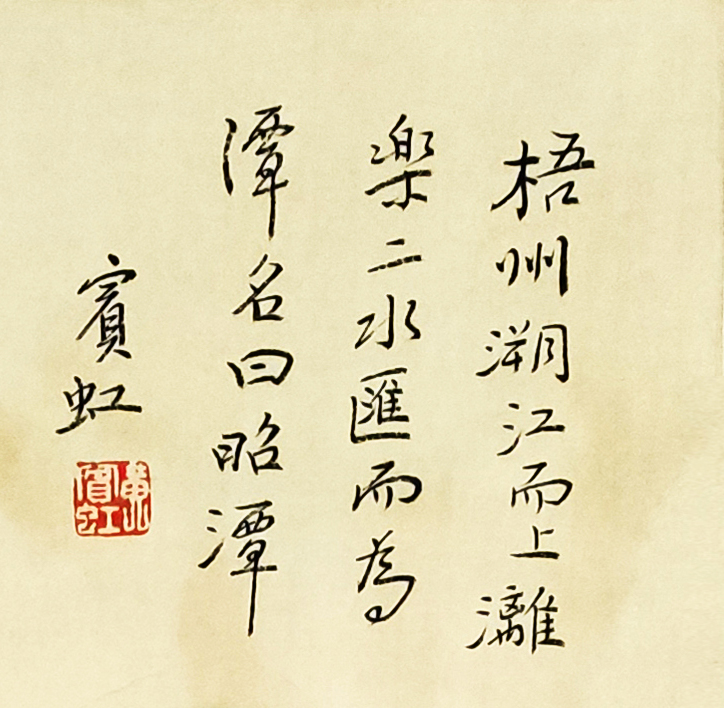 梧州溯江而上灕
樂二水匯而為
潭名曰昭潭
賓虹
黃賓虹